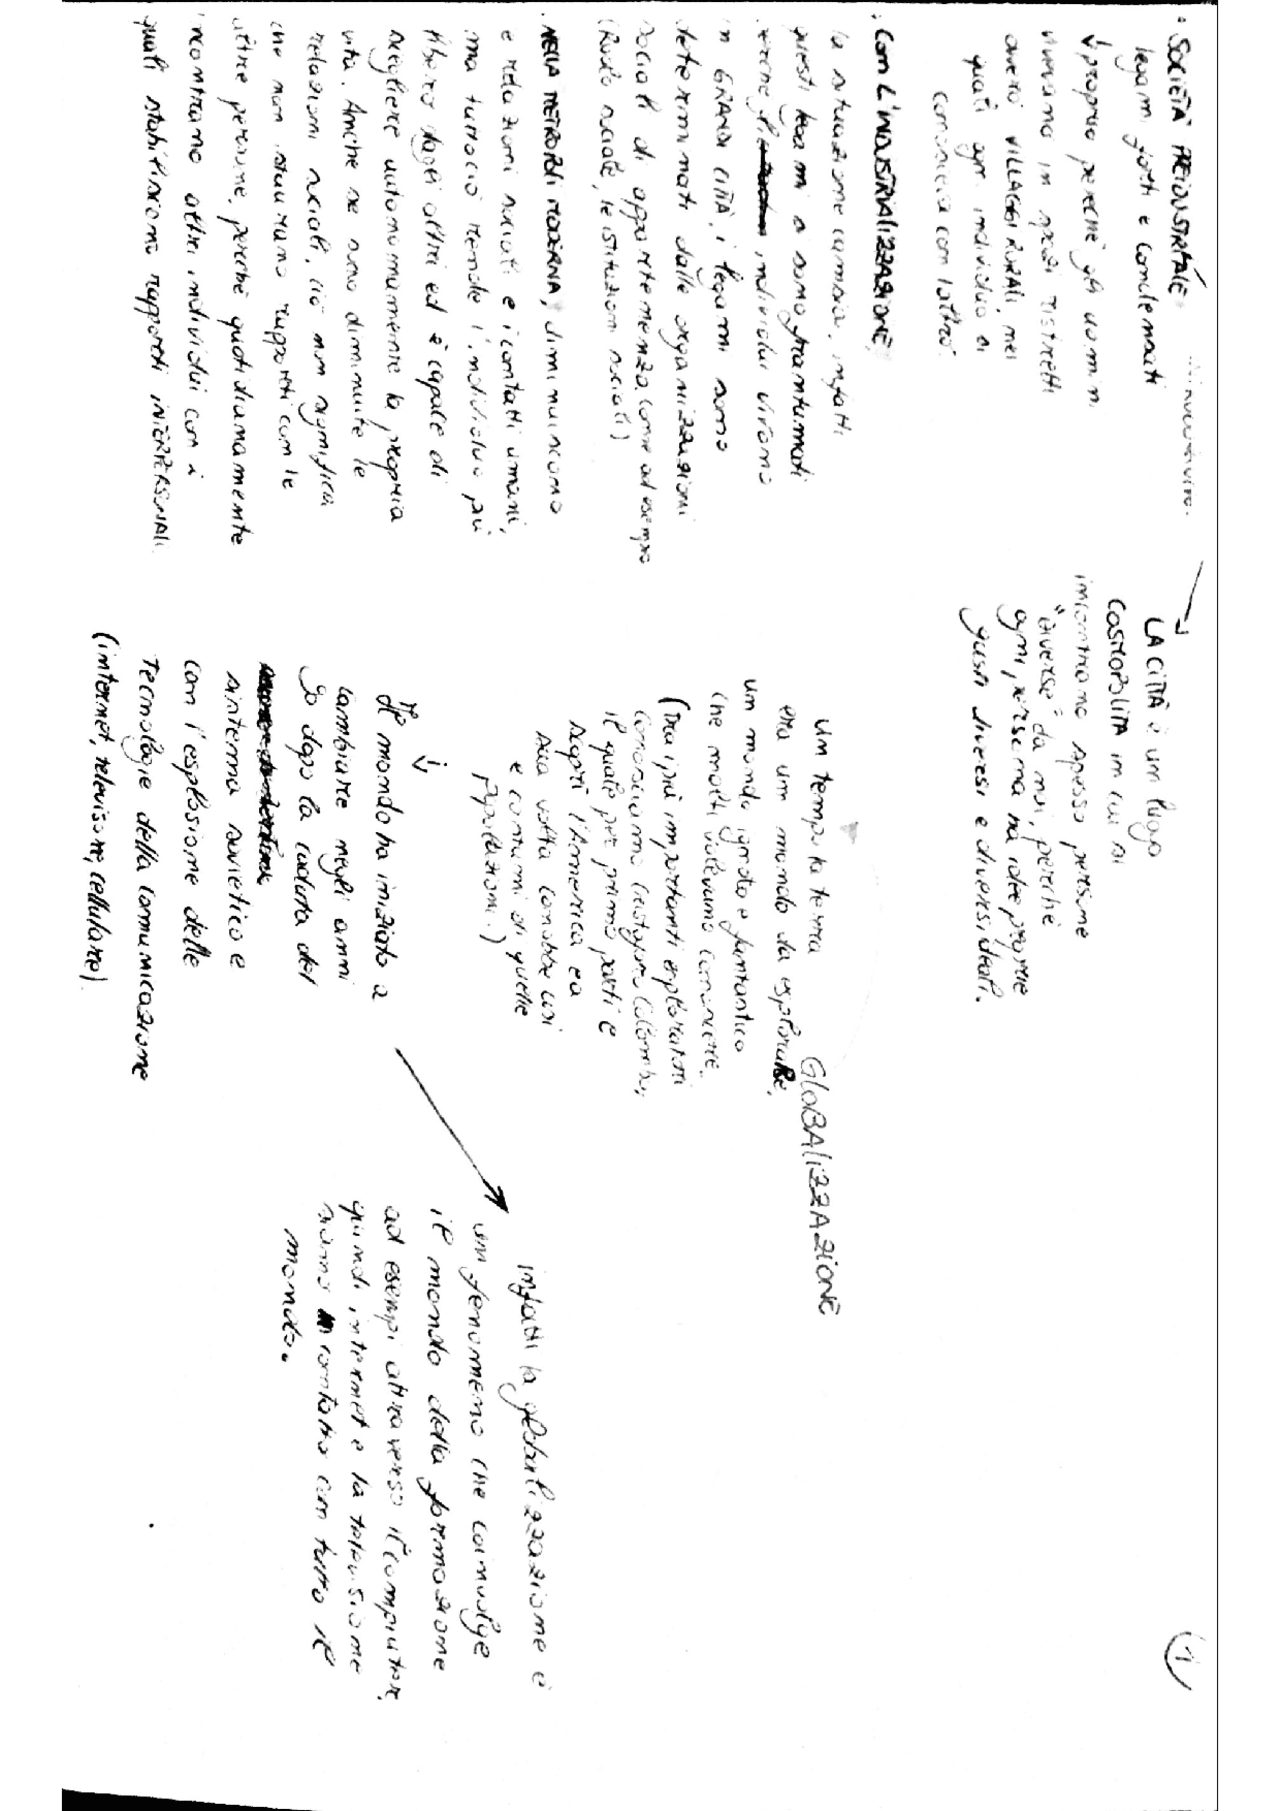 · SOCIETÀ PREINDUSTRIALE
legami forti e condensati
↓ proprio perché gli uomini
vivevano in spazi ristretti
ovvero VILLAGGI RURALI, nei
quali ogni individuo si
conosceva con l'altro.
· CON L'INDUSTRIALIZZAZIONE,
la situazione cambia, infatti
questi legami si sono frantumati
perché individui vivono
in GRANDI CITTÀ, i legami sono
determinati dalle organizzazioni
sociali di appartenenza come ad esempio
(Ruolo sociale, le istituzioni sociali)
· NELLA METROPOLI MODERNA, diminuiscono
le relazioni sociali e i contatti umani,
ma tutto ciò rende l'individuo più
libero dagli altri ed è capace di
scegliere autonomamente la propria
vita. Anche se sono diminuite le
relazioni sociali, ciò non significa
che non instaurano rapporti con le
altre persone, perché quotidianamente
incontrano altri individui con i
quali stabiliscono rapporti INTERPERSONALI.
LA CITTÀ è un luogo
COSMOPOLITA in cui si
incontrano spesso persone
"diverse" da noi, perché
ogni persona ha idee proprie
gusti diversi e diversi ideali.
GLOBALIZZAZIONE
Un tempo la terra
era un mondo da esplorare,
un mondo ignoto e fantastico
che molti volevano conoscere.
(Tra i più importanti esploratori
conosciamo Cristoforo Colombo,
il quale per primo partì e
scoprì l'America ed a
sua volta conobbe usi
e costumi di quelle
popolazioni.)
↓
Il mondo ha iniziato a
cambiare negli anni
90 dopo la caduta del
sistema sovietico e
con l'esplosione delle
tecnologie della comunicazione
(internet, televisore, cellulare)
infatti la globalizzazione è
un fenomeno che coinvolge
il mondo della formazione
ad esempio attraverso il computer,
quindi internet e la televisione
siamo in contatto con tutto il
mondo.
1